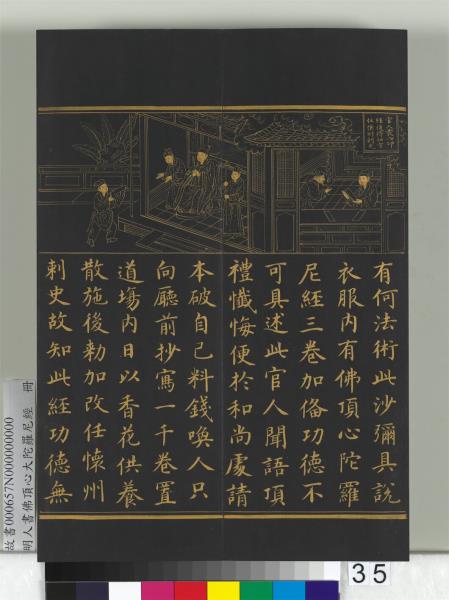 有何法術此沙彌具說
衣服內有佛頂心陀羅
尼經三卷加俻功德不
可具述此官人聞語頂
禮懺悔便於和尚處請
本破自己料錢喚人只
向廳前抄寫一千卷置
道場內日以香花供養
散施後勑加改任懷州
刺史故知此經功德無
35
故書000657N000000000
明人書佛頂心大陀羅尼經 冊